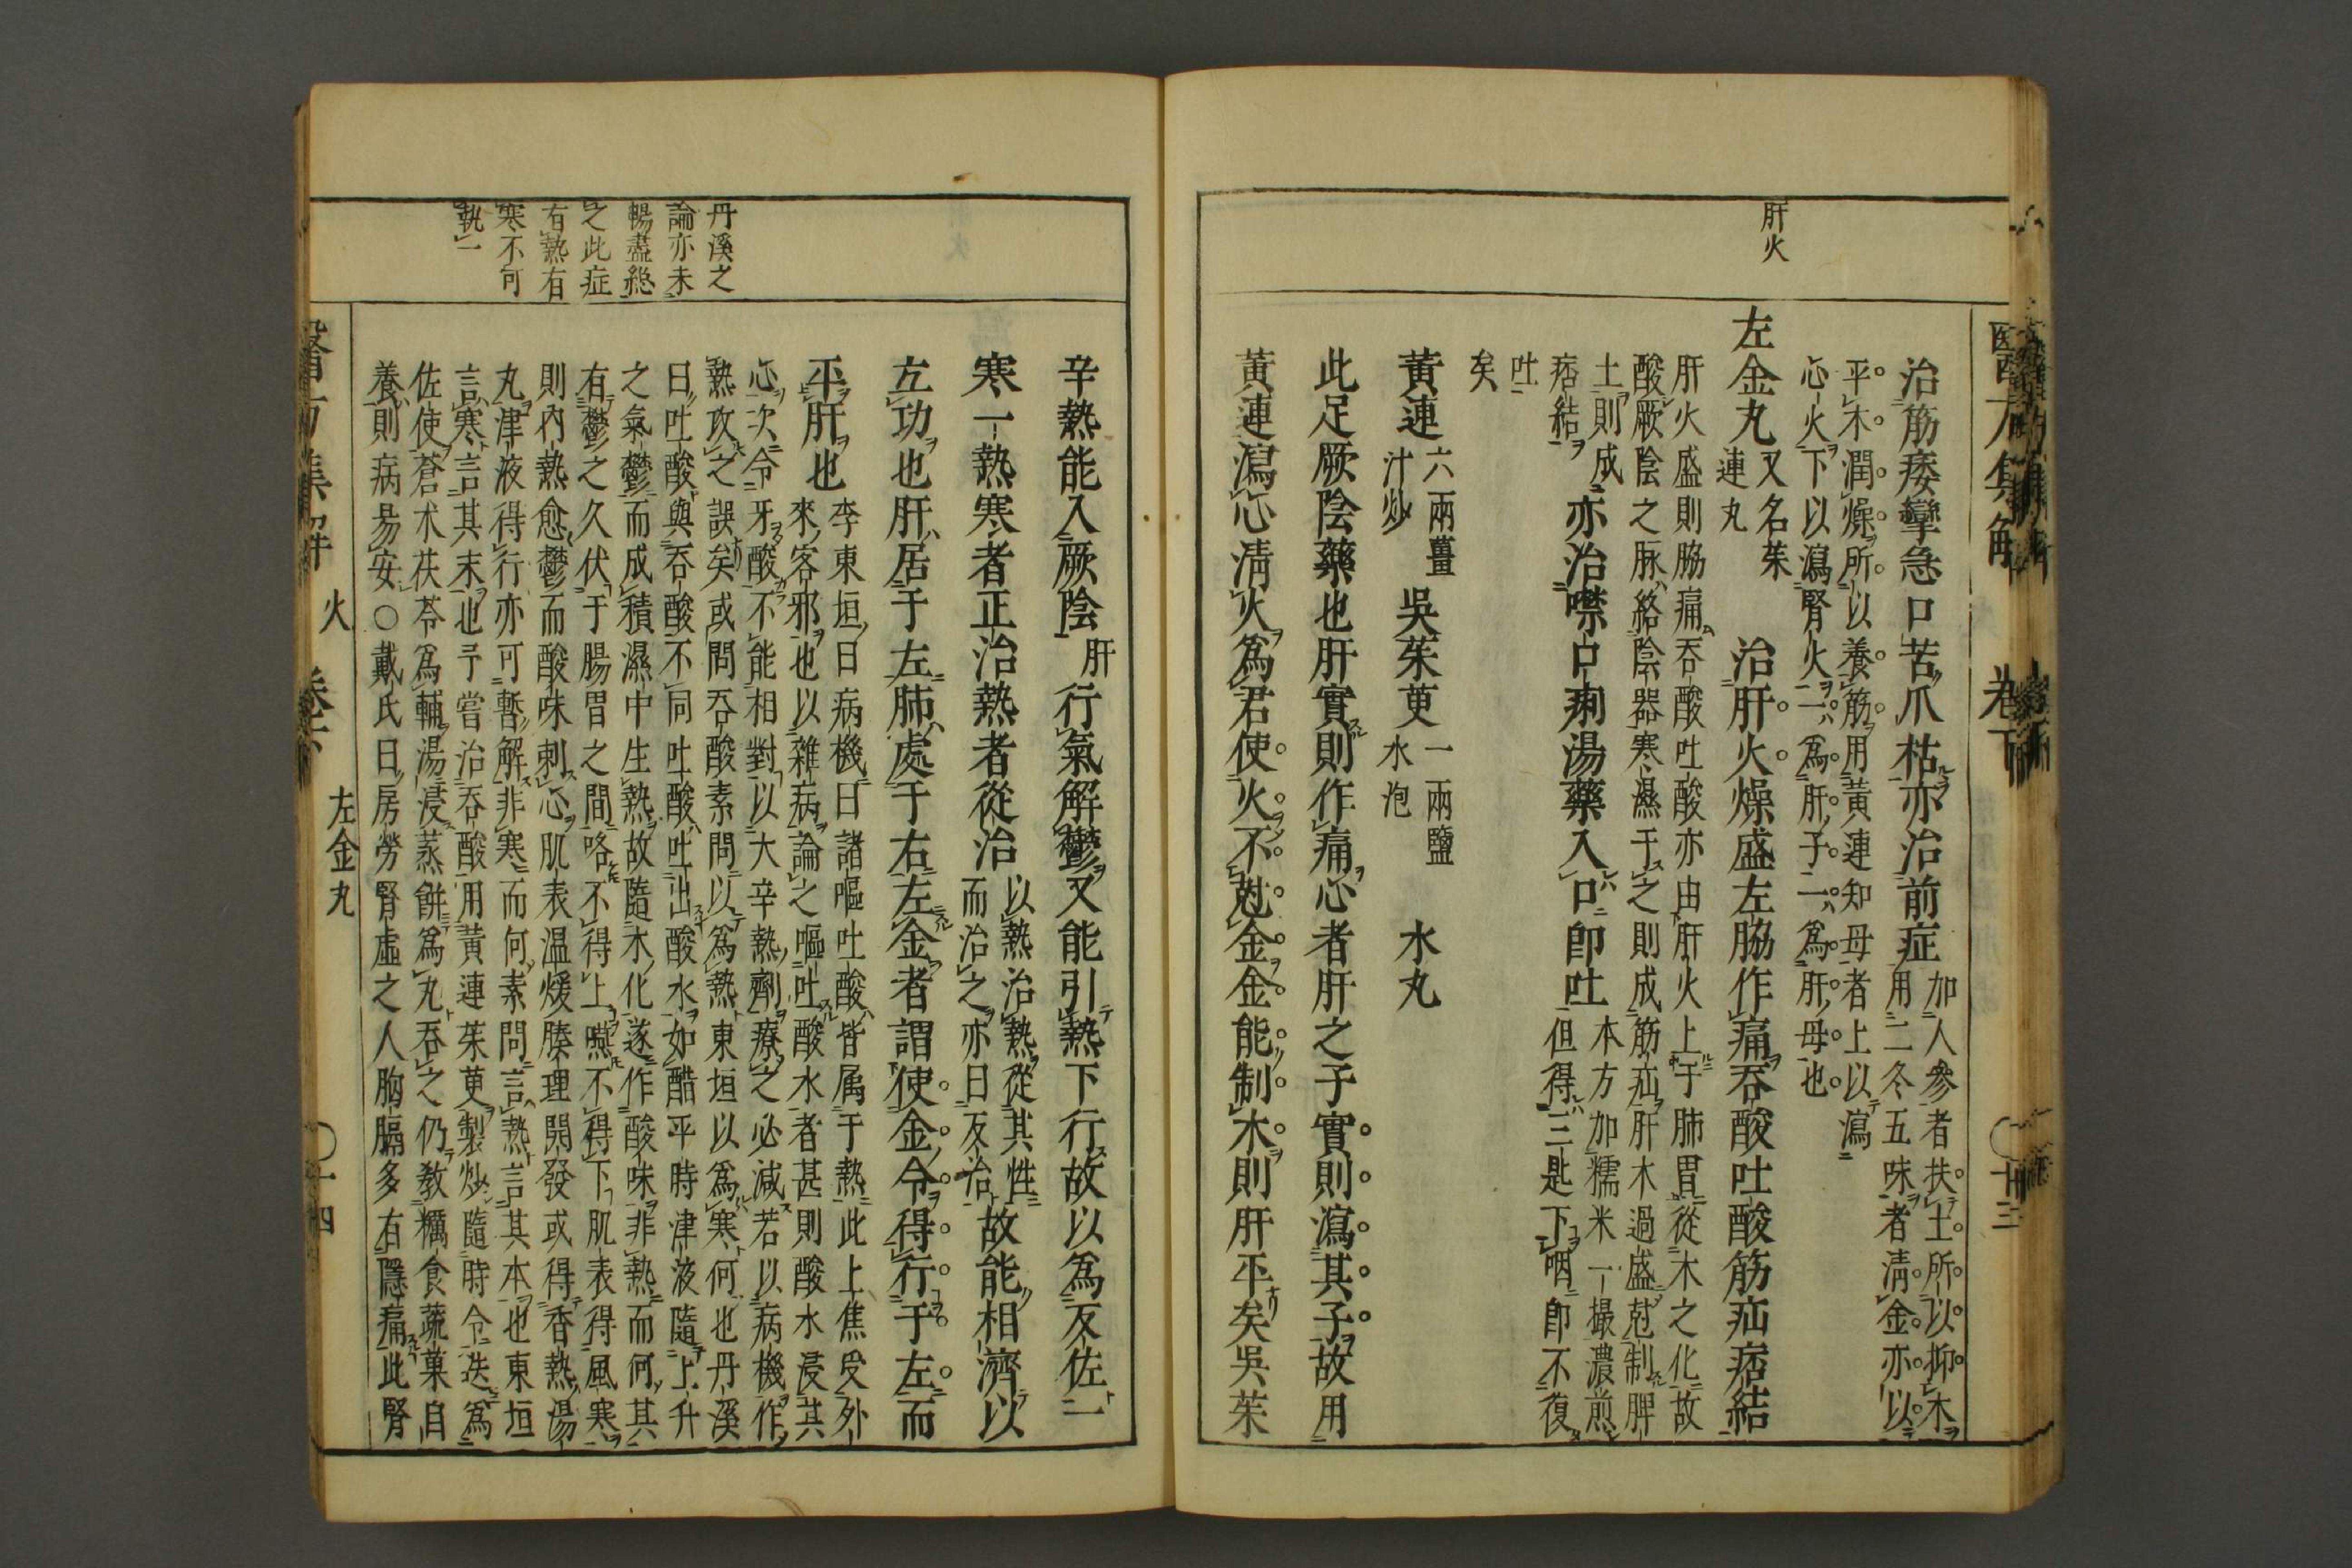 肝火
醫方集解
卷下
十三
治筋痿攣急口苦爪枯亦治前症
加人參者扶土所以抑木
用二冬五味者清金亦以
平木潤燥所以養筋用黃連知母者上以瀉
心火下以瀉腎火一爲肝子一爲肝母也
左金丸
又名茱
連丸
治肝火燥盛左脇作痛吞酸吐酸筋疝痞結
肝火盛則脇痛吞酸吐酸亦由肝火上于肺胃從木之化故
酸厥陰之脉絡陰器寒濕干之則成筋疝肝木過盛尅制脾
土則成
痞結
亦治噤口痢湯藥入口卽吐
本方加糯米一撮濃煎
但得三匙下咽卽不復
吐
矣
黃連
六兩薑
汁炒
吳茱萸
一兩鹽
水泡
水丸
此足厥陰藥也肝實則作痛心者肝之子實則瀉其子故用
黃連瀉心清火爲君使火不尅金金能制木則肝平矣吳茱
丹溪之
論亦未
暢盡總
之此症
有熱有
寒不可
執一
辛熱能入厥陰
肝
行氣解鬱又能引熱下行故以爲反佐一
寒一熱寒者正治熱者從治
以熱治熱從其性
而治之亦曰反治
故能相濟以
立功也肝居于左肺處于右左金者謂使金令得行于左而
平肝也
李東垣曰病機曰諸嘔吐酸皆属于熱此上焦受外
來客邪也以雜病論之嘔吐酸水者甚則酸水浸其
心次令牙酸不能相對以大辛熱劑療之必減若以病機作
熱攻之誤矣或問吞酸素問以爲熱東垣以爲寒何也丹溪
曰吐酸與吞酸不同吐酸吐出酸水如酷平時津液隨上升
之氣鬱而成積濕中生熱故隨木化遂作酸味非熱而何其
有鬱之久伏于腸胃之間咯不得上嚥不得下肌表得風寒
則內熱愈鬱而酸味刺心肌表溫煖腠理開發或得香熱湯
丸津液得行亦可暫解非寒而何素問言熱言其本也東垣
言寒言其末也予嘗治吞酸用黃連茱萸製炒隨時令迭爲
佐使蒼朮茯苓爲輔湯浸蒸餅爲丸吞之仍教糲食蔬菓自
養則病易安○戴氏曰房勞腎虛之人胸膈多有隱痛此腎
醫方集解
火
卷下
左金丸
十四